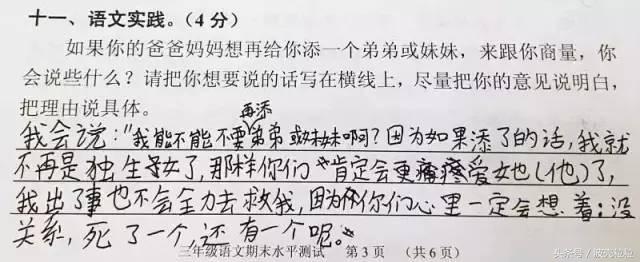 十一、语文实践。(4分)
如果你的爸爸妈妈想再给你添一个弟弟或妹妹，来跟你商量，你
会说些什么？请把你想要说的话写在横线上，尽量把你的意见说明白，
把理由说具体。
再添
我会说："我能不能不要弟弟或妹妹啊？因为如果添了的话，我就
不再是独生子女了，那样你们肯定会更疼爱她(他)了，
我出了事也不会全力去救我，因为你们心里一定会想着：没
关系，死了一个，还有一个呢。"
三年级语文期末水平测试 第3页 (共6页)
头条号／波克粒粒